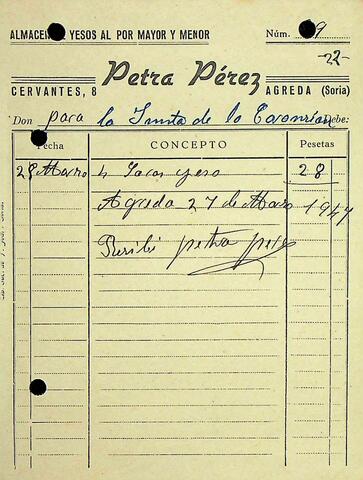 ALMACEN YESOS AL POR MAYOR Y MENOR
Núm. 9
-22-
Petra Pérez
CERVANTES, 8
AGREDA (Soria)
Don para la Junta de la Debe:
Fecha CONCEPTO Pesetas
28 Marzo 4 Sacos yeso 28
Agreda 27 de Marzo 1947
Recibi petra perez